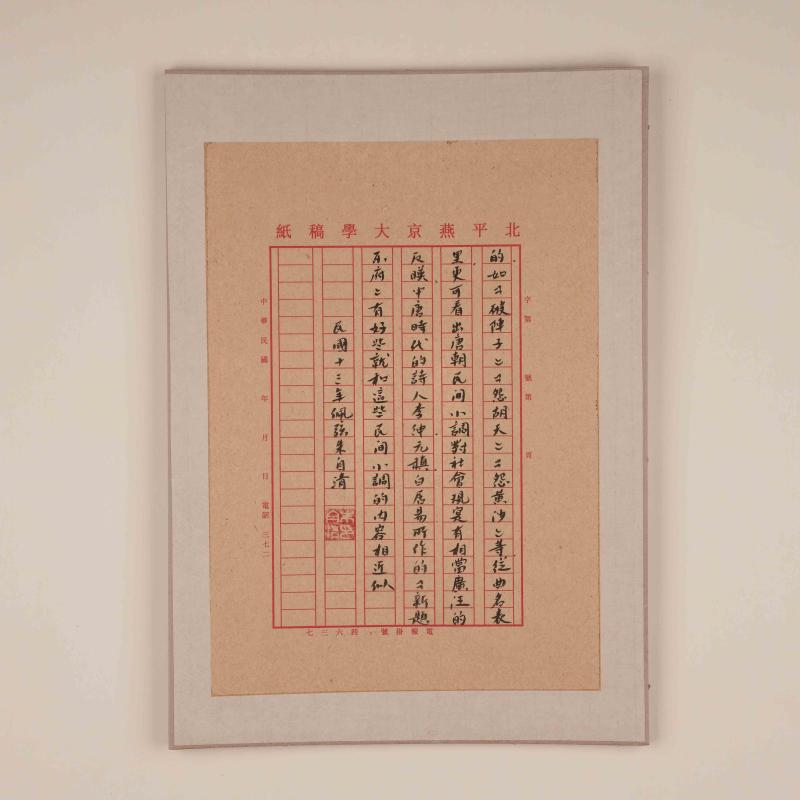 北平燕京大學稿紙
字第　號第　頁
的如〻破陣子〻〻怨胡天〻〻怨黄沙〻等從曲名表
里更可看出唐朝民间小調對社會現寔有相當廣泛的
反暎中唐時代的詩人李绅元稹白居易所作的〻新題
乐府〻有好些就和這些民间小調的内容相近似
民國十三年佩弦朱自清
中華民國　年　月　日　電話　三七二
電報掛號：四六三七